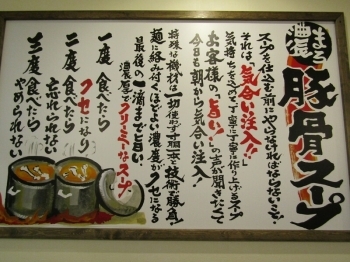 まろ濃
豚骨スープ
スープを仕込む前にやらなければならないこと、
それは「気合い注入！」
気持ちを込めて丁寧に丁寧に作り上げるスープ
お客様の、“旨い!”の声が聞きたくて
今日も朝から気合い注入！
特殊な機材は一切使わず寸胴一本と技術で勝負！
麺に絡み付くほどよい濃度がクセになる
最後の一滴まで旨い
濃度でクリーミーなスープ
一度食べたら
クセになり
二度食べたら
忘れられない
三度食べたら
やめられない